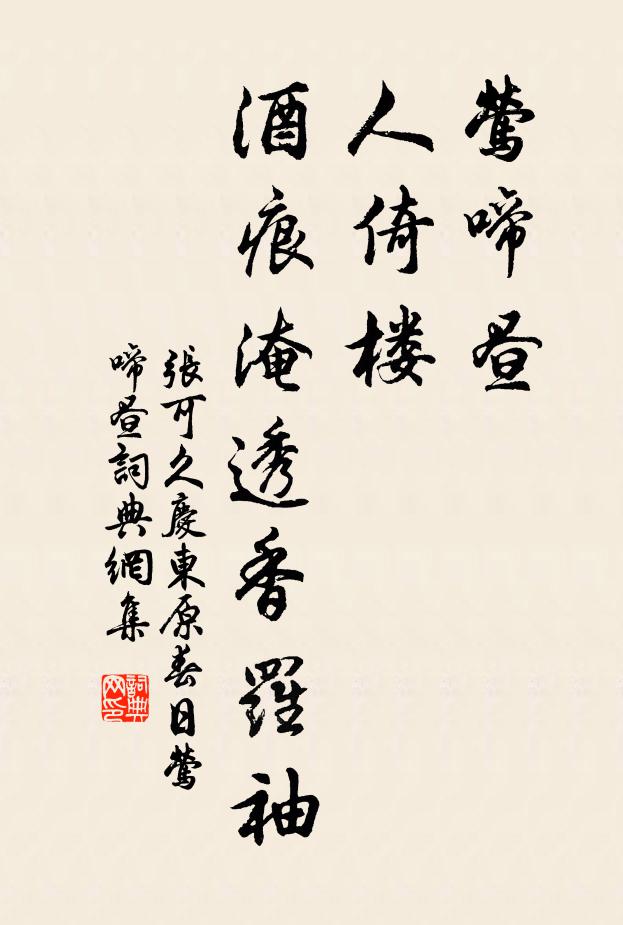 鶯啼晝
人倚楼
酒痕淹透香羅袖
張可久慶東原春日鶯
啼晝詞典網集
詞典
网印